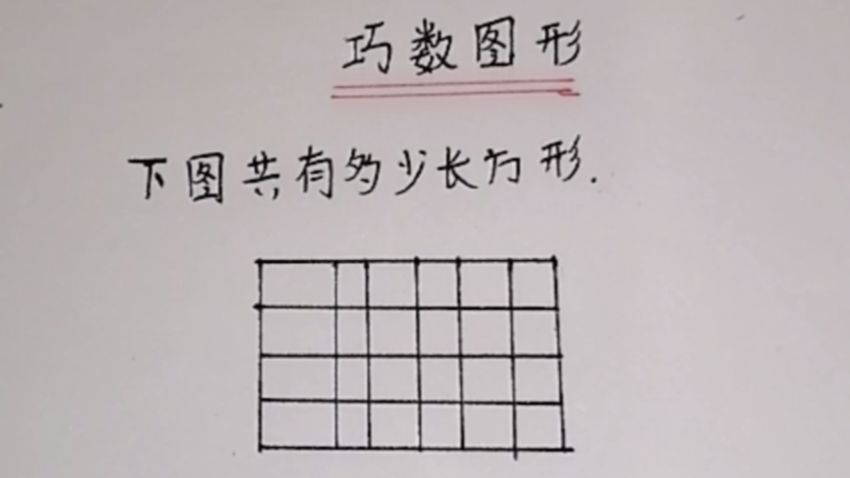 巧数图形
下图共有多少长方形.